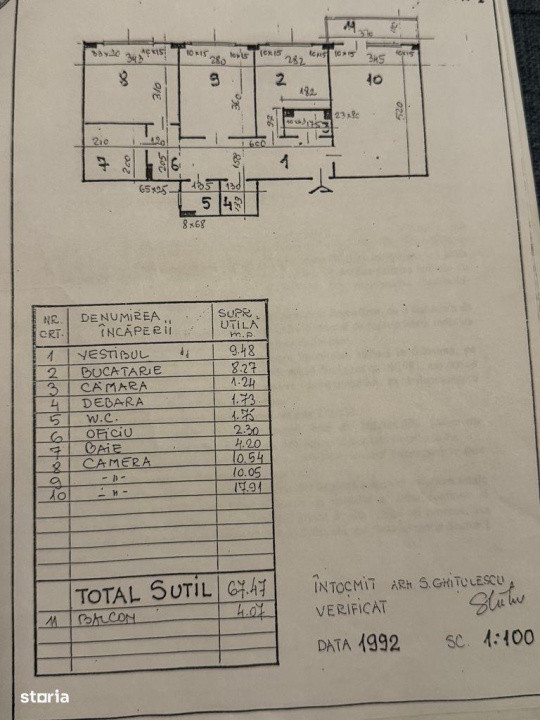 11
376
33x20
10x15
10x15
10x15
10x15
10x15
10x15
10x15
343
280
282
345
8
9
2
10
310
360
182
92
23x20
3
520
210
120
600
7
200
205
6
158
1
65x25
135
130
5
4
133
8x68
NR. CRT.
DENUMIREA ÎNCĂPERII
SUPR. UTILĂ m.p.
1 VESTIBUL 9.48
2 BUCATARIE 8.27
3 CĂMARA 1.24
4 DEBARA 1.73
5 W.C. 1.75
6 OFICIU 2.30
7 BAIE 4.20
8 CAMERA 10.54
9 -"- 10.05
10 -"- 17.91
TOTAL SUTIL 67.47
11 BALCON 4.07
ÎNTOCMIT ARH S.GHIȚULESCU
VERIFICAT
DATA 1992 SC. 1:100
storia